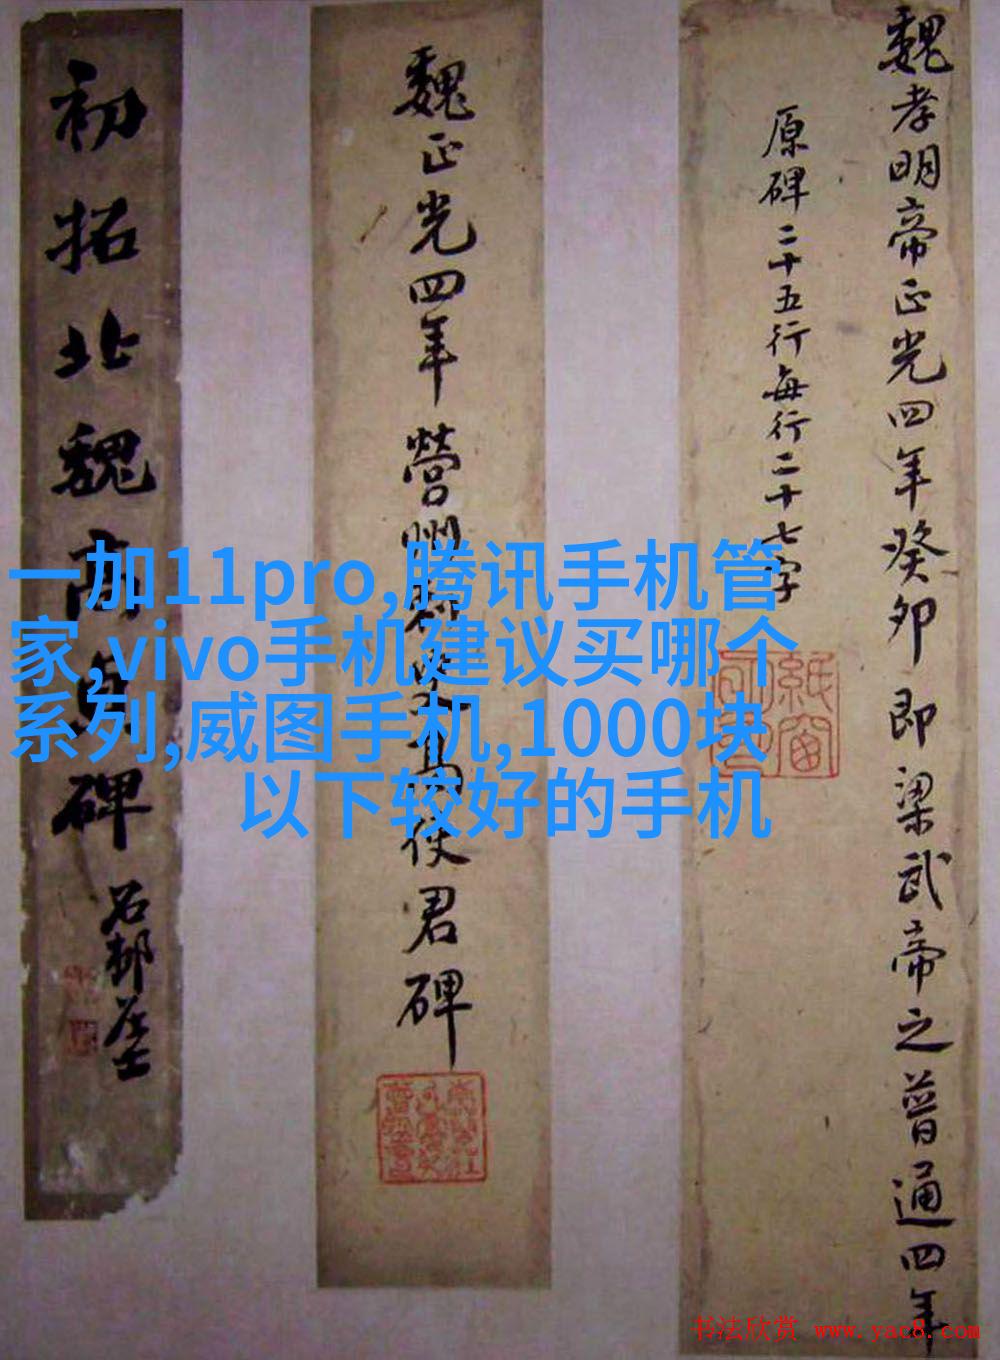 魏孝明帝正光四年癸卯即梁武帝之普通四年
原碑二十五行每行二十七字
魏正光四年營州刺史高使君碑
初拓北魏高貞碑
石邨居士
一加11pro,腾讯手机管
家,vivo手机建议买哪个
系列,威图手机,1000块
以下较好的手机
书法欣赏 www.yac8.com